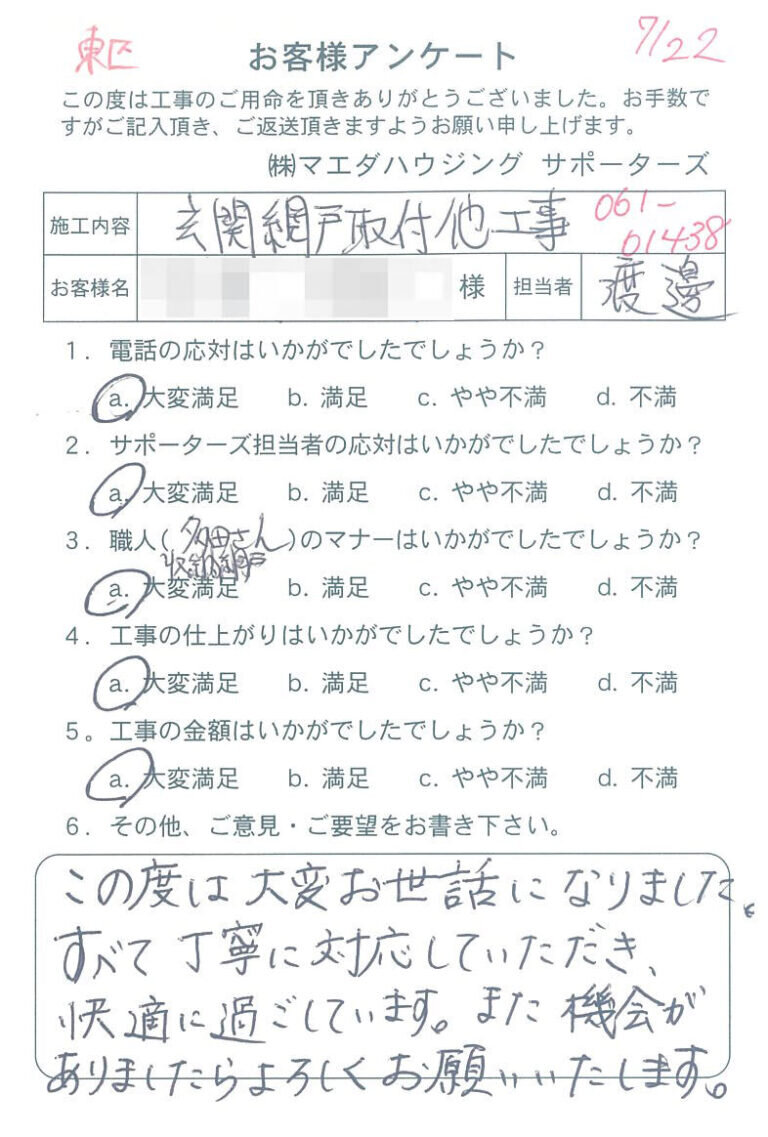 東区
7/22
お客様アンケート
この度は工事のご用命を頂きありがとうございました。お手数で
すがご記入頂き、ご返送頂きますようお願い申し上げます。
㈱マエダハウジング サポーターズ
施工内容 玄関網戸取付他工事 061-01438
お客様名 様 担当者 渡邊
1. 電話の応対はいかがでしたでしょうか?
a. 大変満足 b. 満足 c. やや不満 d. 不満
2. サポーターズ担当者の応対はいかがでしたでしょうか?
a. 大変満足 b. 満足 c. やや不満 d. 不満
3. 職人(多田さん)のマナーはいかがでしたでしょうか?
収納網戸
a. 大変満足 b. 満足 c. やや不満 d. 不満
4. 工事の仕上がりはいかがでしたでしょうか?
a. 大変満足 b. 満足 c. やや不満 d. 不満
5。工事の金額はいかがでしたでしょうか?
a. 大変満足 b. 満足 c. やや不満 d. 不満
6. その他、ご意見・ご要望をお書き下さい。
この度は大変お世話になりました。
すべて丁寧に対応していただき、
快適に過ごしています。また機会が
ありましたらよろしくお願いいたします。